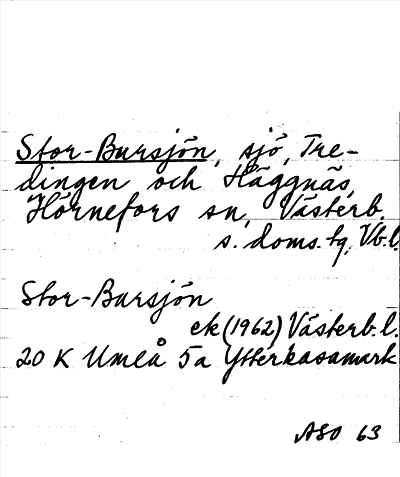 Stor-Bursjön, sjö, Tre-
dingen och Häggnäs,
Hörnefors sn, Västerb.
s. doms. tg, Vb. l.
Stor-Bursjön
ek (1962) Västerb. l.
20 K Umeå 5a Ytterkasamark
ASO 63